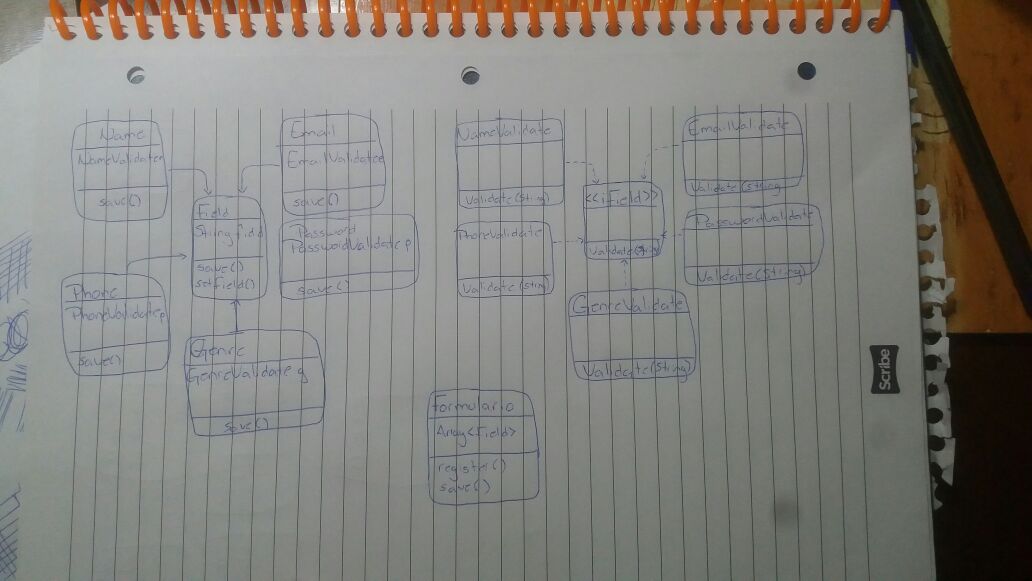 Name
NameValidate n
save()
Email
EmailValidate e
save()
Field
String field
save()
setField()
Password
PasswordValidate p
save()
Phone
PhoneValidate p
save()
Genre
GenreValidate g
save()
NameValidate
Validate(String)
EmailValidate
Validate(String
<<iField>>
Validate(String
PhoneValidate
Validate(String)
PasswordValidate
Validate(String)
GenreValidate
Validate(String)
Formulario
Array<Field>
register()
save()
Scribe